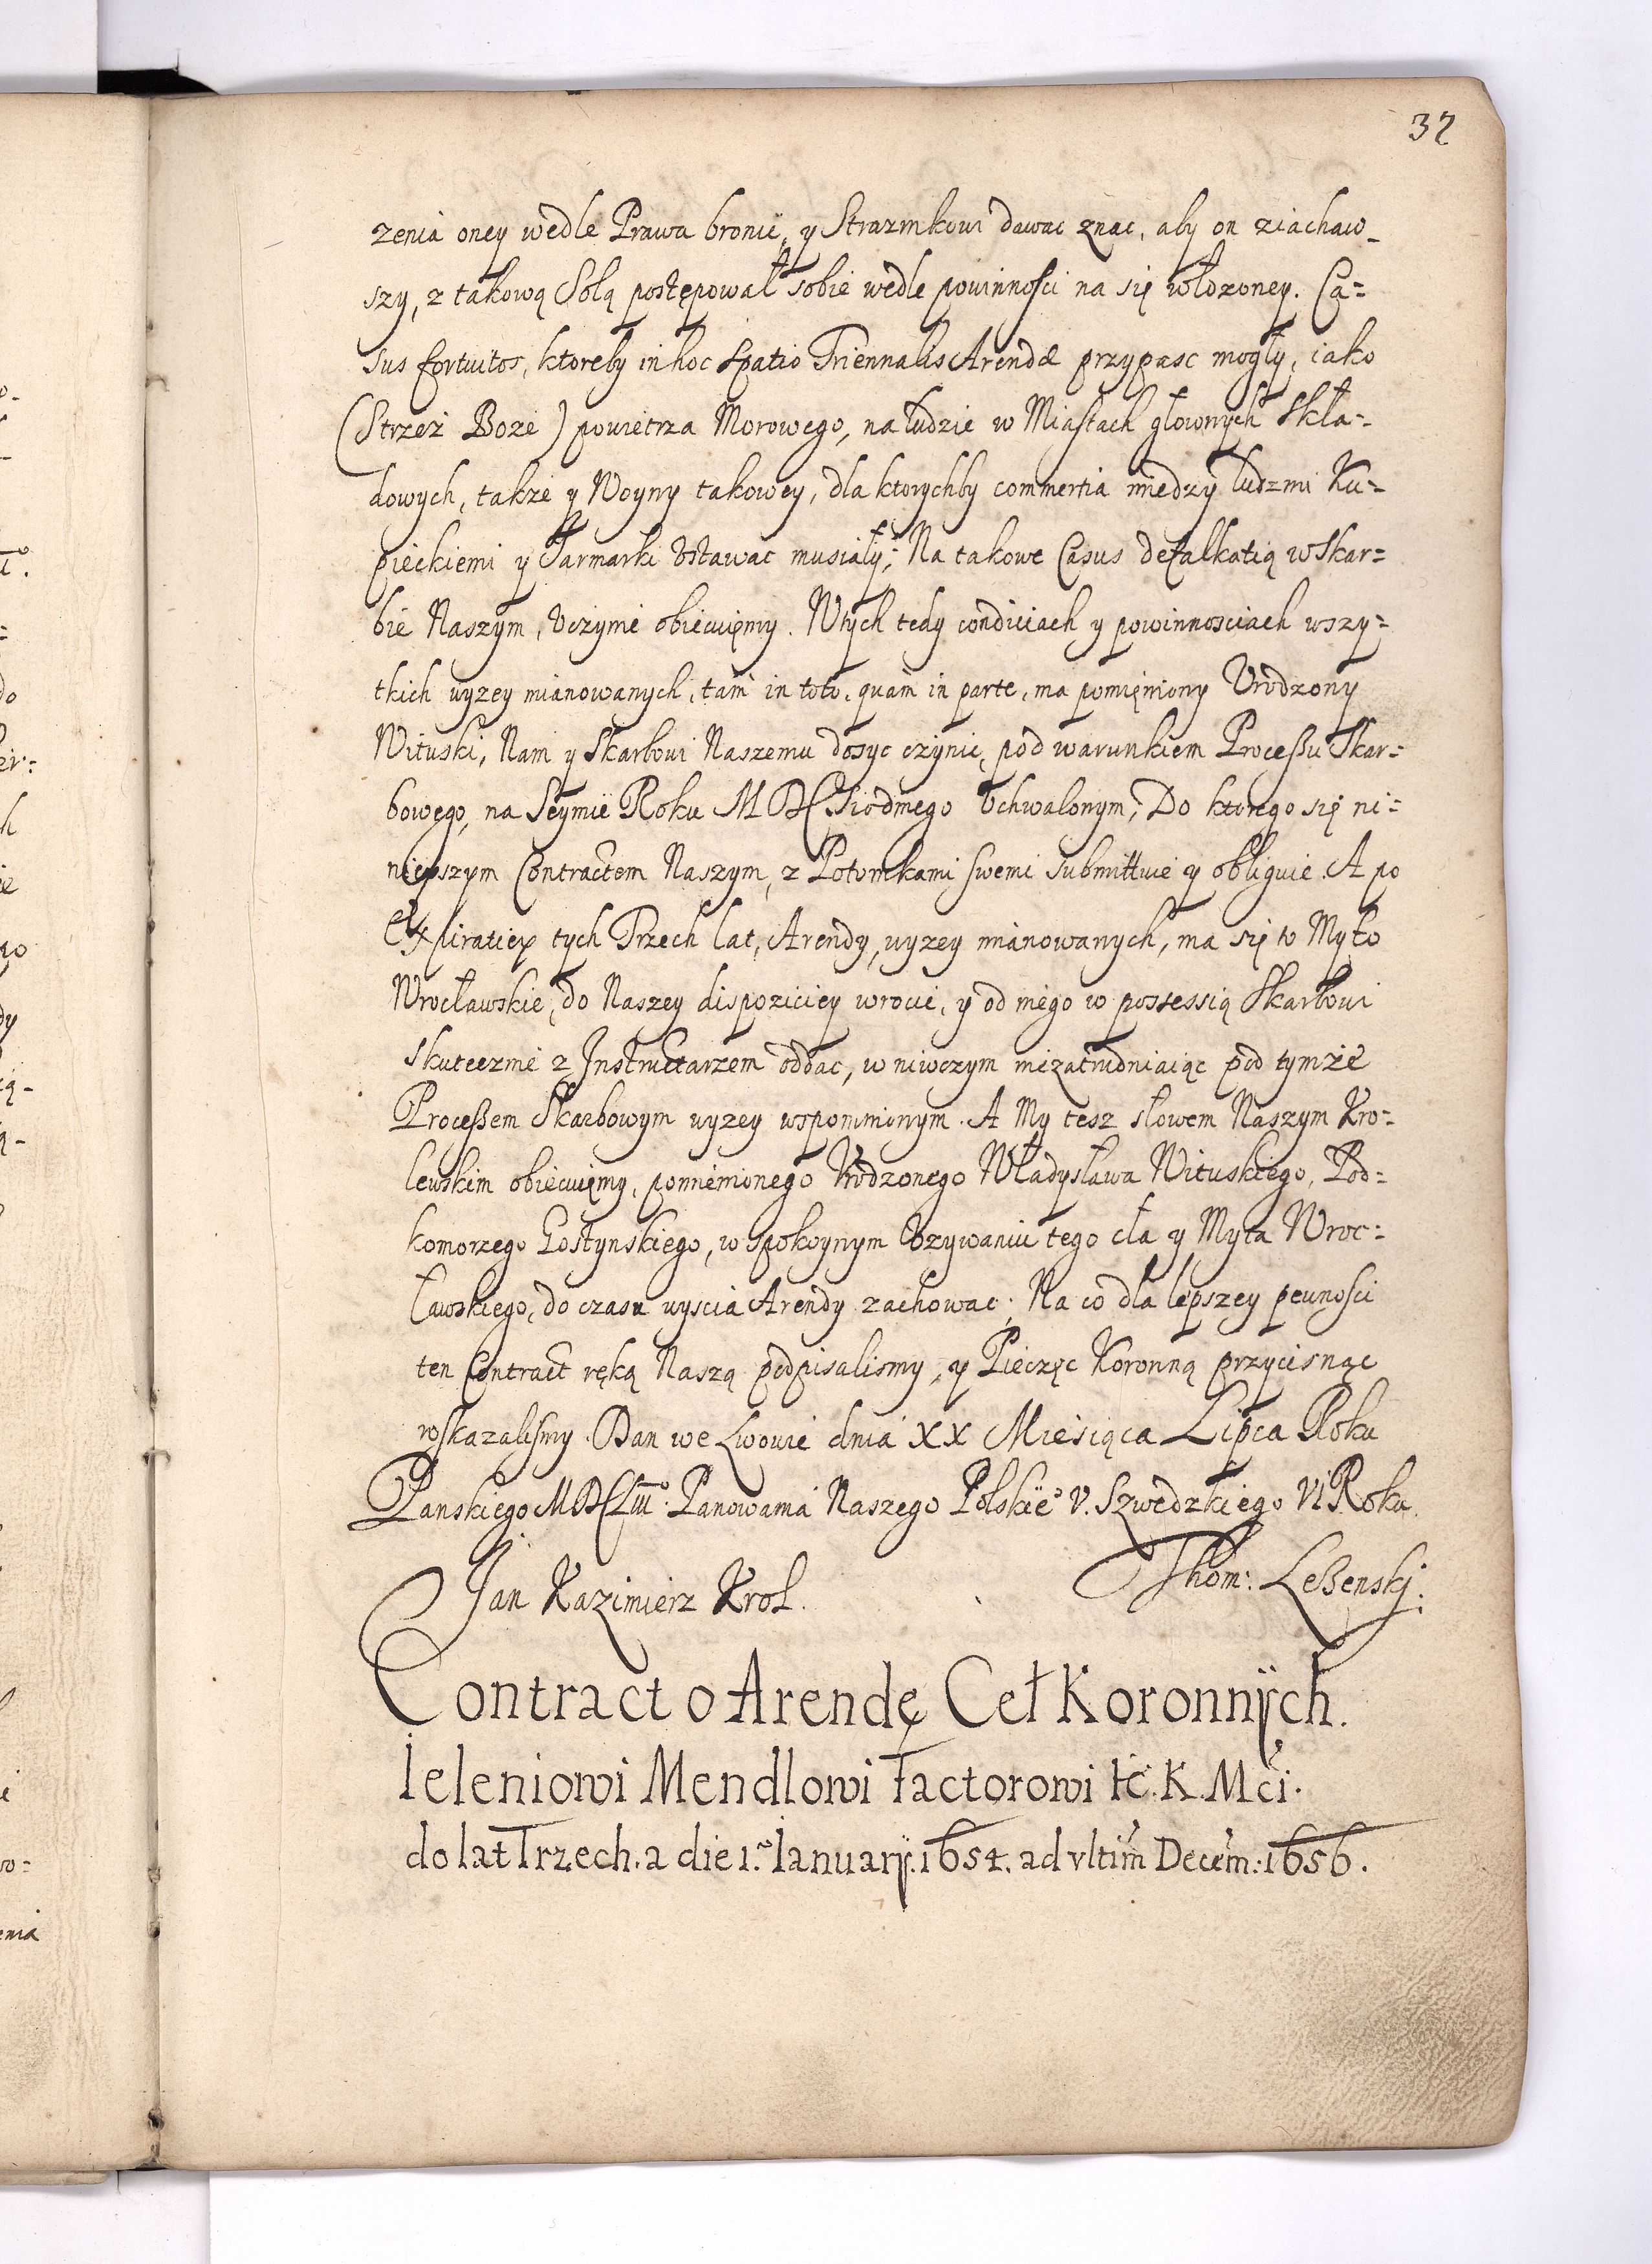 37
zenia oney wedle Prawa bronić, y Straznikowi dawac znac, aby on ziachaw-
szy, z takową Solą postępował sobie wedle powinności na się włozoney. Ca=
sus fortuitos, ktoreby in hoc spatio Triennalis Arendæ przypasc mogły, iako
(Strzeż Boże) powietrza Morowego, na ludzie w Miastach głownych Skła=
dowych, takze y Woyny takowey, dla ktorychby commertia miedzy ludzmi Ku=
pieckiemi y Jarmarki Vstawac musiały; Na takowe Casus defalkatią w Skar=
bie Naszym, Vczynić obiecuięmy. Wtych tedy condiciach y powinnosciach wszy=
tkich wyzey mianowanych, tam in toto, quam in parte, ma pomięniony Vrodzony
Wituski, Nam y Skarbowi Naszemu dosyc czynic, pod warunkiem Processu Skar=
bowego, na Seymie Roku MDC Siodmego Vchwalonym; Do ktorego się ni=
nieyszym Contractem Naszym, z Potomkami swemi submittuie y obliguie. A po
Expiratiey tych Trzech lat, Arendy, wyzey mianowanych, ma się to Myto
Wrocławskie, do Naszey dispoziciey wrocić, y od niego w possessią Skarbowi
skutecznie z Instructarzem oddac, w niwczym niezatrudniaiąc pod tymże
Processem Skarbowym wyzey wspomnionym. A My tesz słowem Naszym Kro=
lewskim obiecuięmy, pomienionego Vrodzonego Władysława Wituskiego, Pod=
komorzego Gostynskiego, w spokoynym Vzywaniu tego cła y Myta Wroc=
ławskiego, do czasu wyscia Arendy zachowac; Na co dla lepszey pewności
ten Contract ręką Naszą podpisalismy, y Pieczęc Koronną przycisnąc
roskazalismy. Dan we Lwowie dnia XX Miesiąca Lipca Roku
Panskiego MDCLiii°. Panowania Naszego Polskie° V. Szwedzkiego VI Roku.
Jan Kazimierz Krol. Thom: Leßenskj:
Contract o Arendę Ceł Koronnÿch.
Ieleniowi Mendlowi Factorowi K.Mći.
do lat Trzech. a die 1.ma Ianuarÿ. 1654. ad vltim̃ Decem̃: 1656.